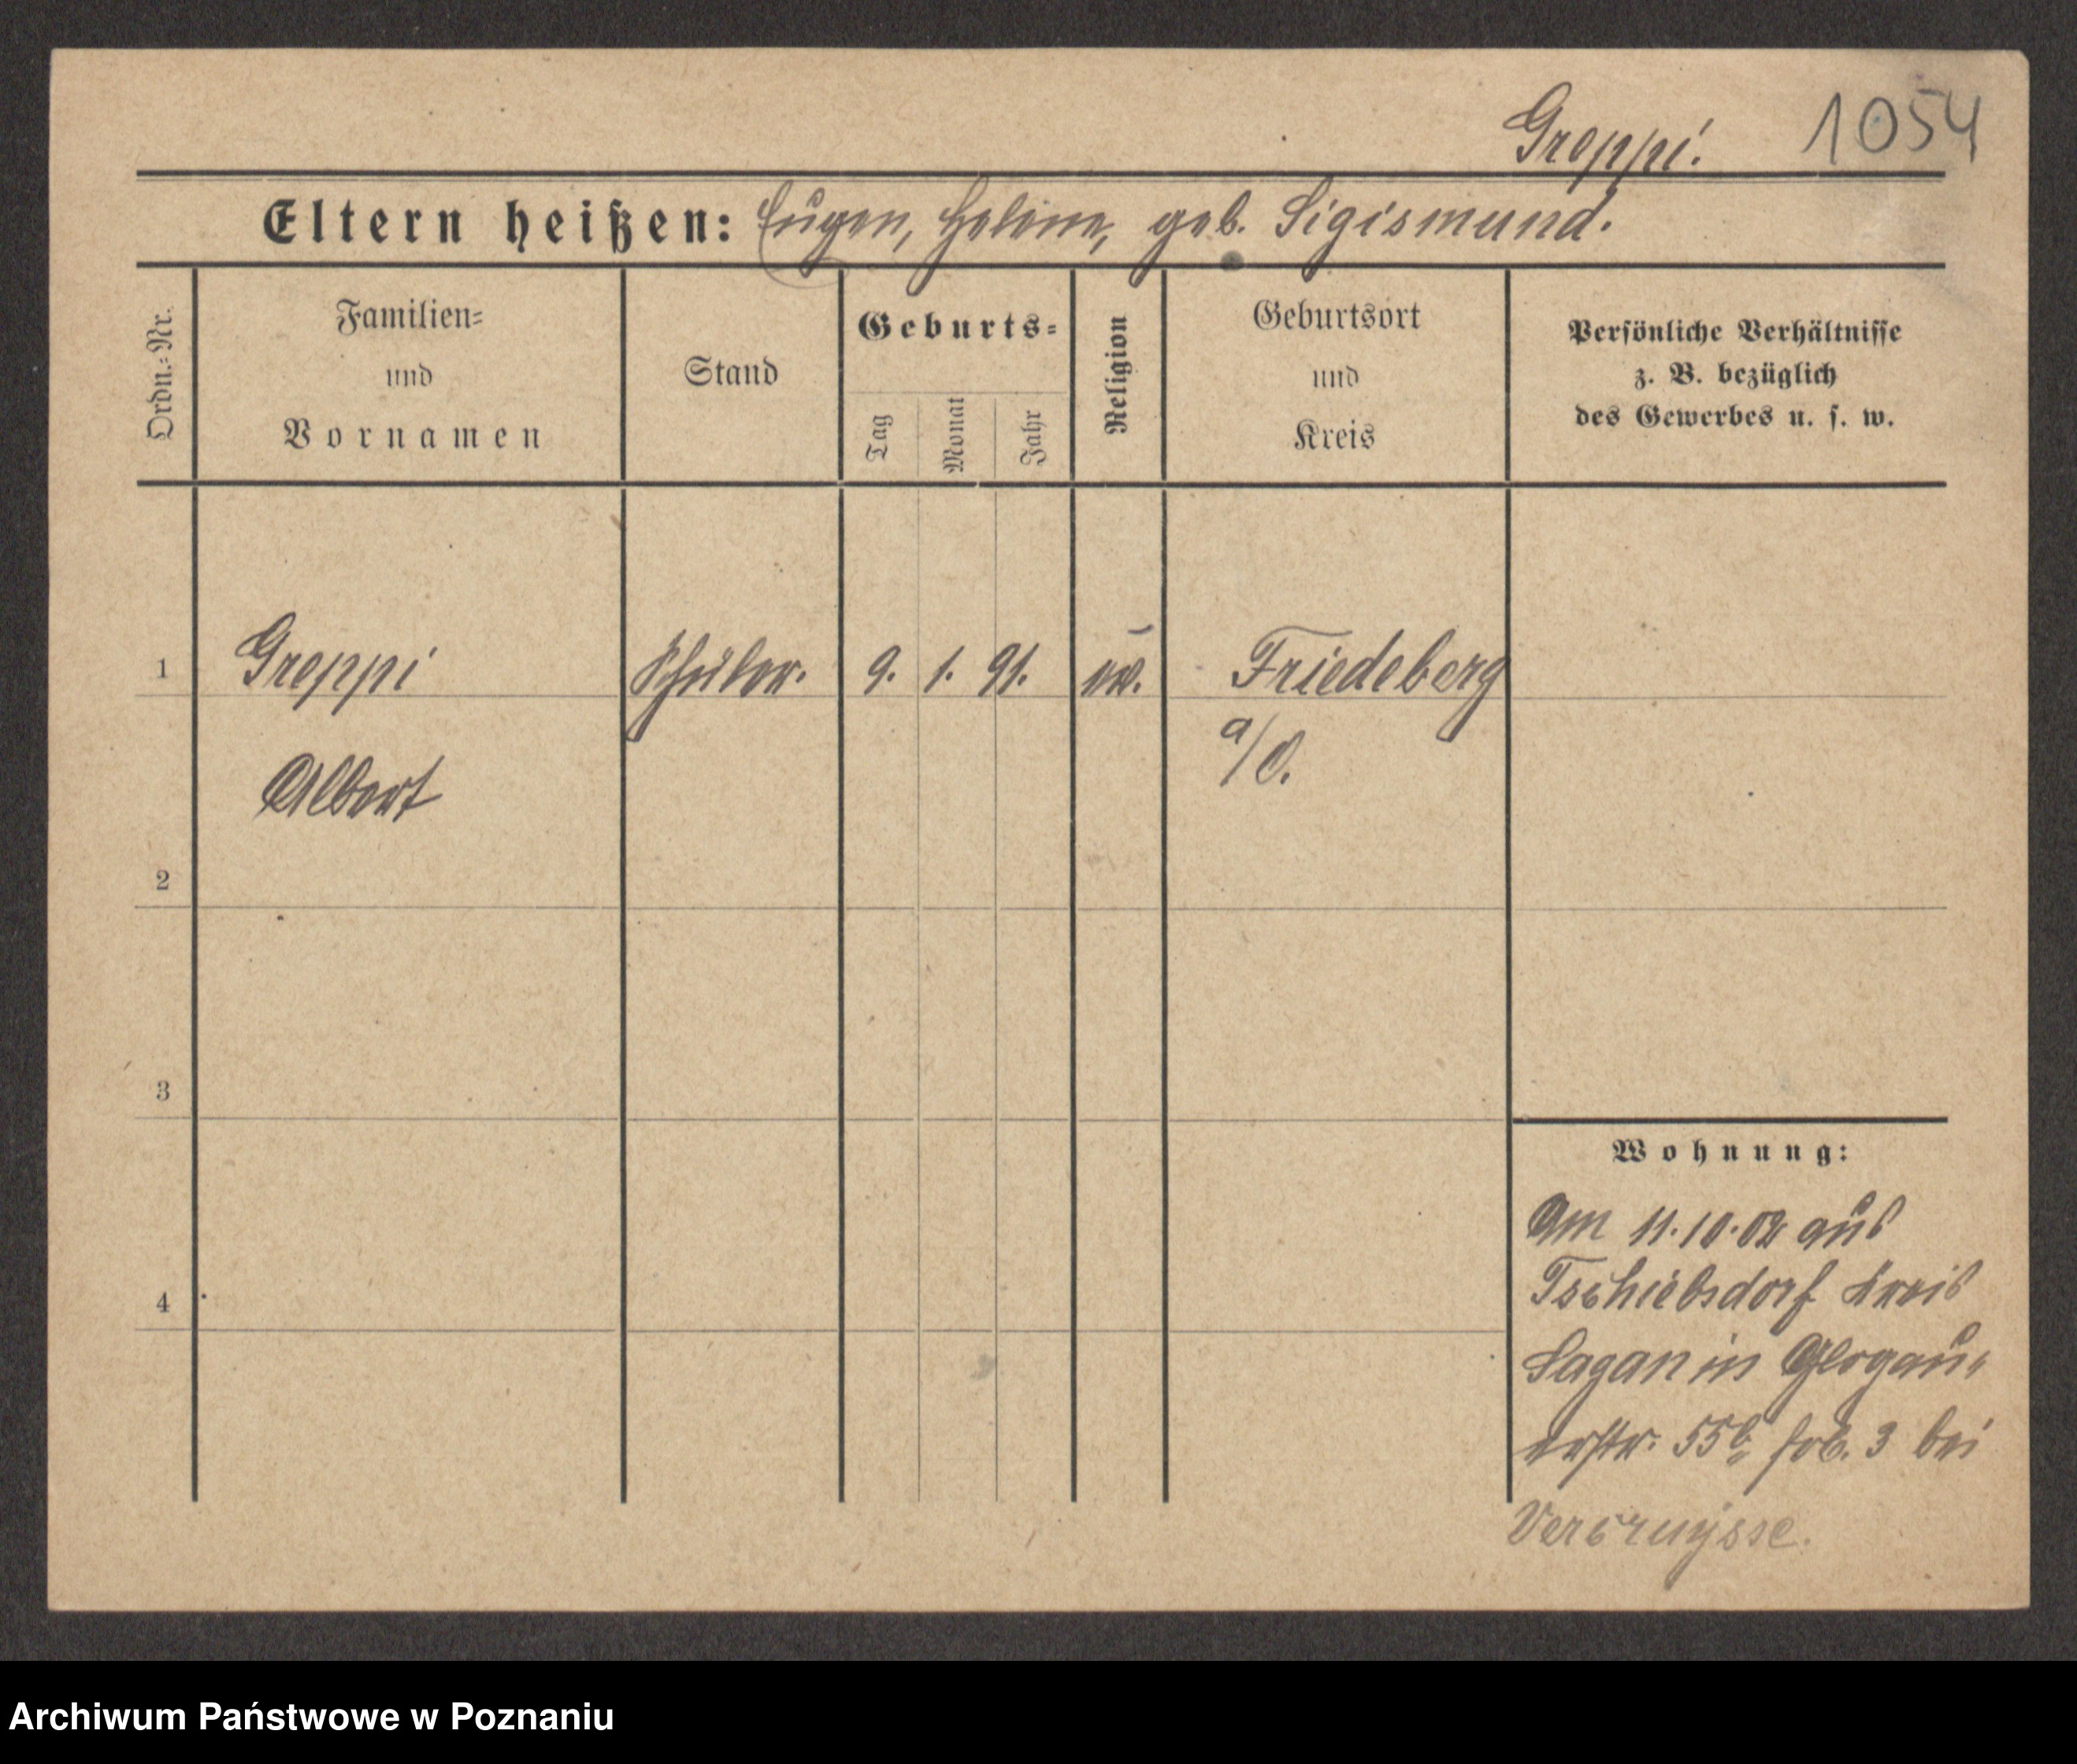 Greppi. 1054
Eltern heißen: Eugen, Helene, geb. Sigismund.
Ordn.-Nr.
Familien-
und
Vornamen
Stand
Geburts-
Tag
Monat
Jahr
Religion
Geburtsort
und
Kreis
Persönliche Verhältnisse
z. B. bezüglich
des Gewerbes u. s. w.
1 Greppi Schüler. 9. 1. 91. ev. Friedeberg
a/O.
Albert
2
3
4
Wohnung:
Am 11.10.02 aus
Tschiebsdorf Kreis
Sagan in Glogau-
erstr. 55b, 3 bei
Vercruysse.
Archiwum Państwowe w Poznaniu